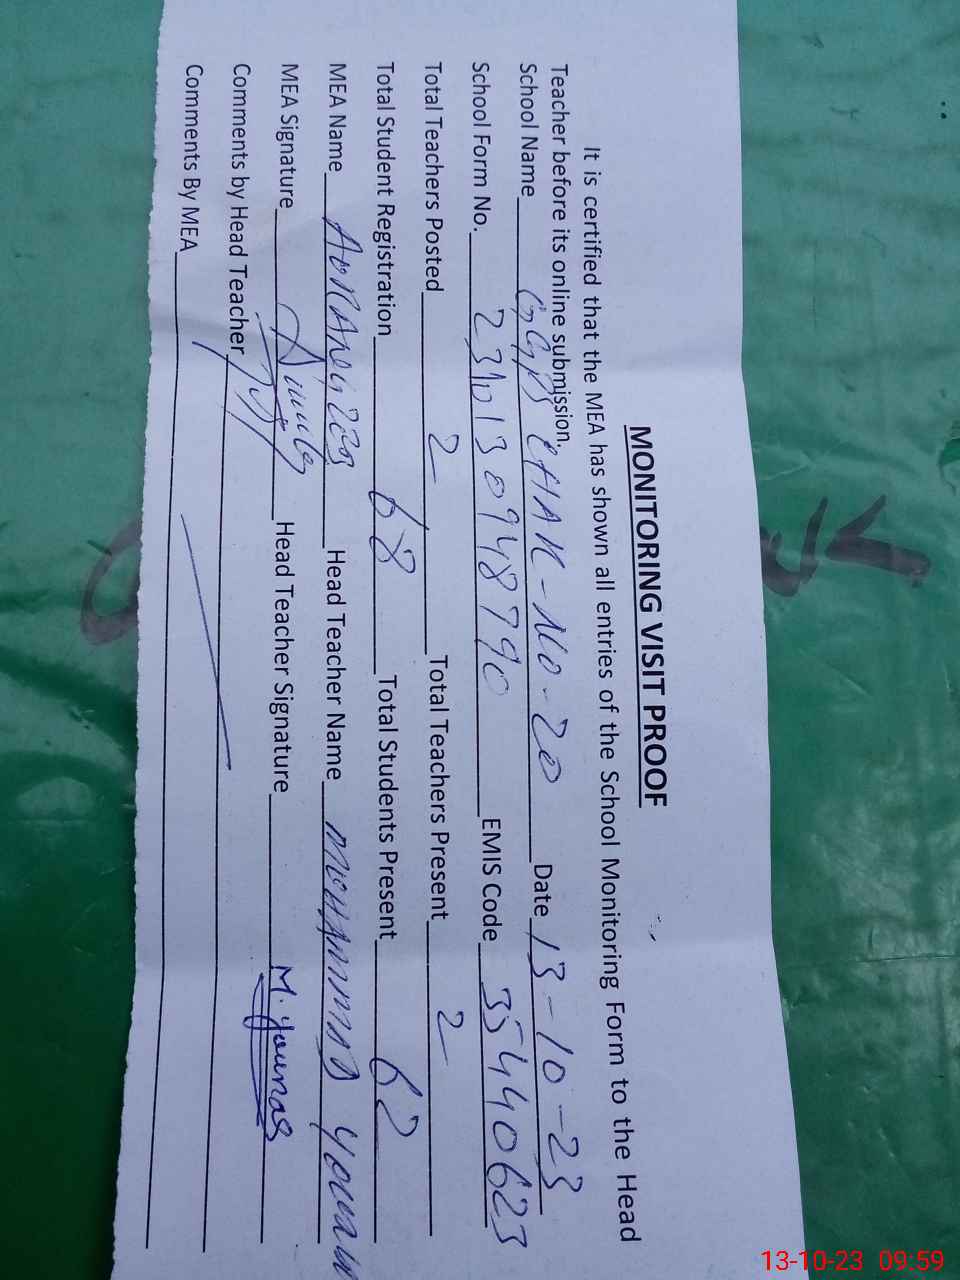 MONITORING VISIT PROOF
It is certified that the MEA has shown all entries of the School Monitoring Form to the Head
Teacher before its online submission.
School Name CHAK-NO-20 Date 13-10-23
School Form No. EMIS Code 35440623
Total Teachers Posted 2 Total Teachers Present 2
Total Student Registration 68 Total Students Present 62
MEA Name Head Teacher Name
MEA Signature Head Teacher Signature M. Younas
Comments by Head Teacher
Comments By MEA
13-10-23 09:59